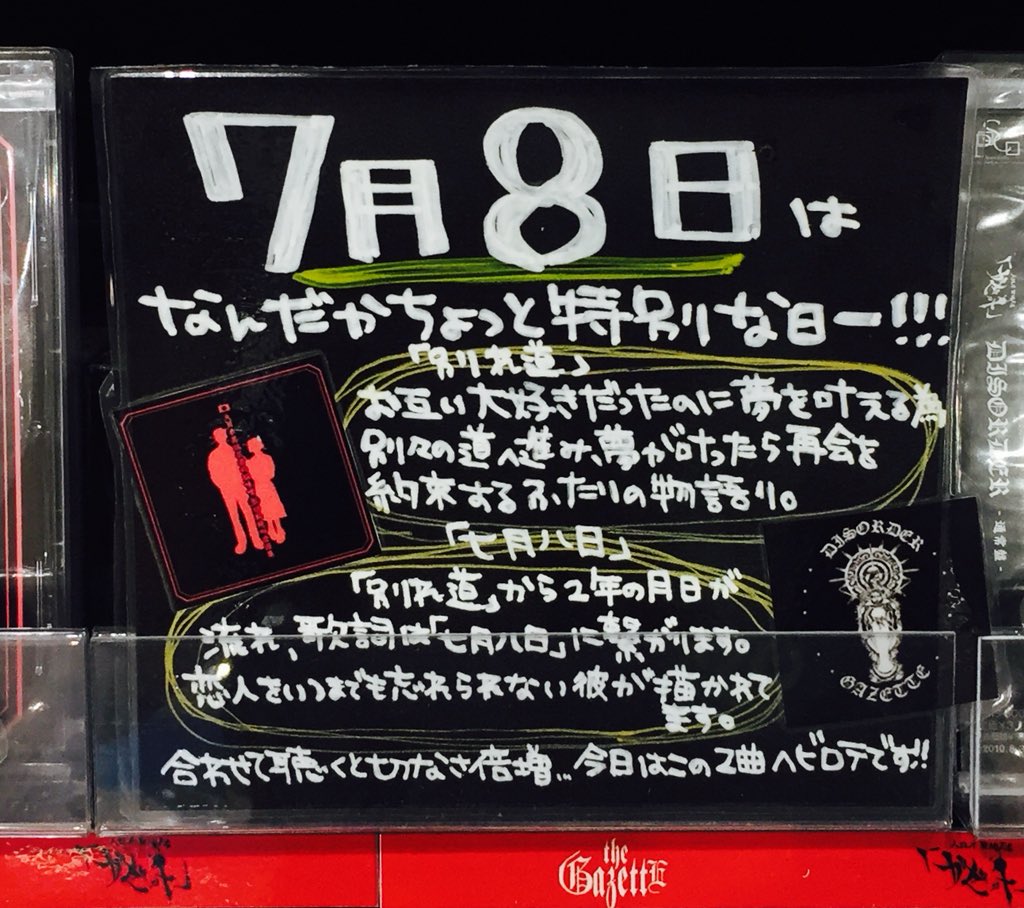 7月8日は
なんだかちょっと特別な日ー!!!
「別れ道」
お互い大好きだったのに夢を叶える為
別々の道へ進み、夢が叶ったら再会を
約束するふたりの物語り。
「七月八日」
「別れ道」から2年の月日が
流れ、歌詞は「七月八日」に繋がります。
恋人をいつまでも忘れられない彼が描かれて
ます。
合わせて聴くと切なさ倍増… 今日はこの2曲ヘビロテです!!
DISORDER
GAZETTE
DISORDER
- 通常盤 -
the GazettE